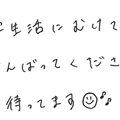 生活にむけて
んばってくださ
待ってます☺♪♪